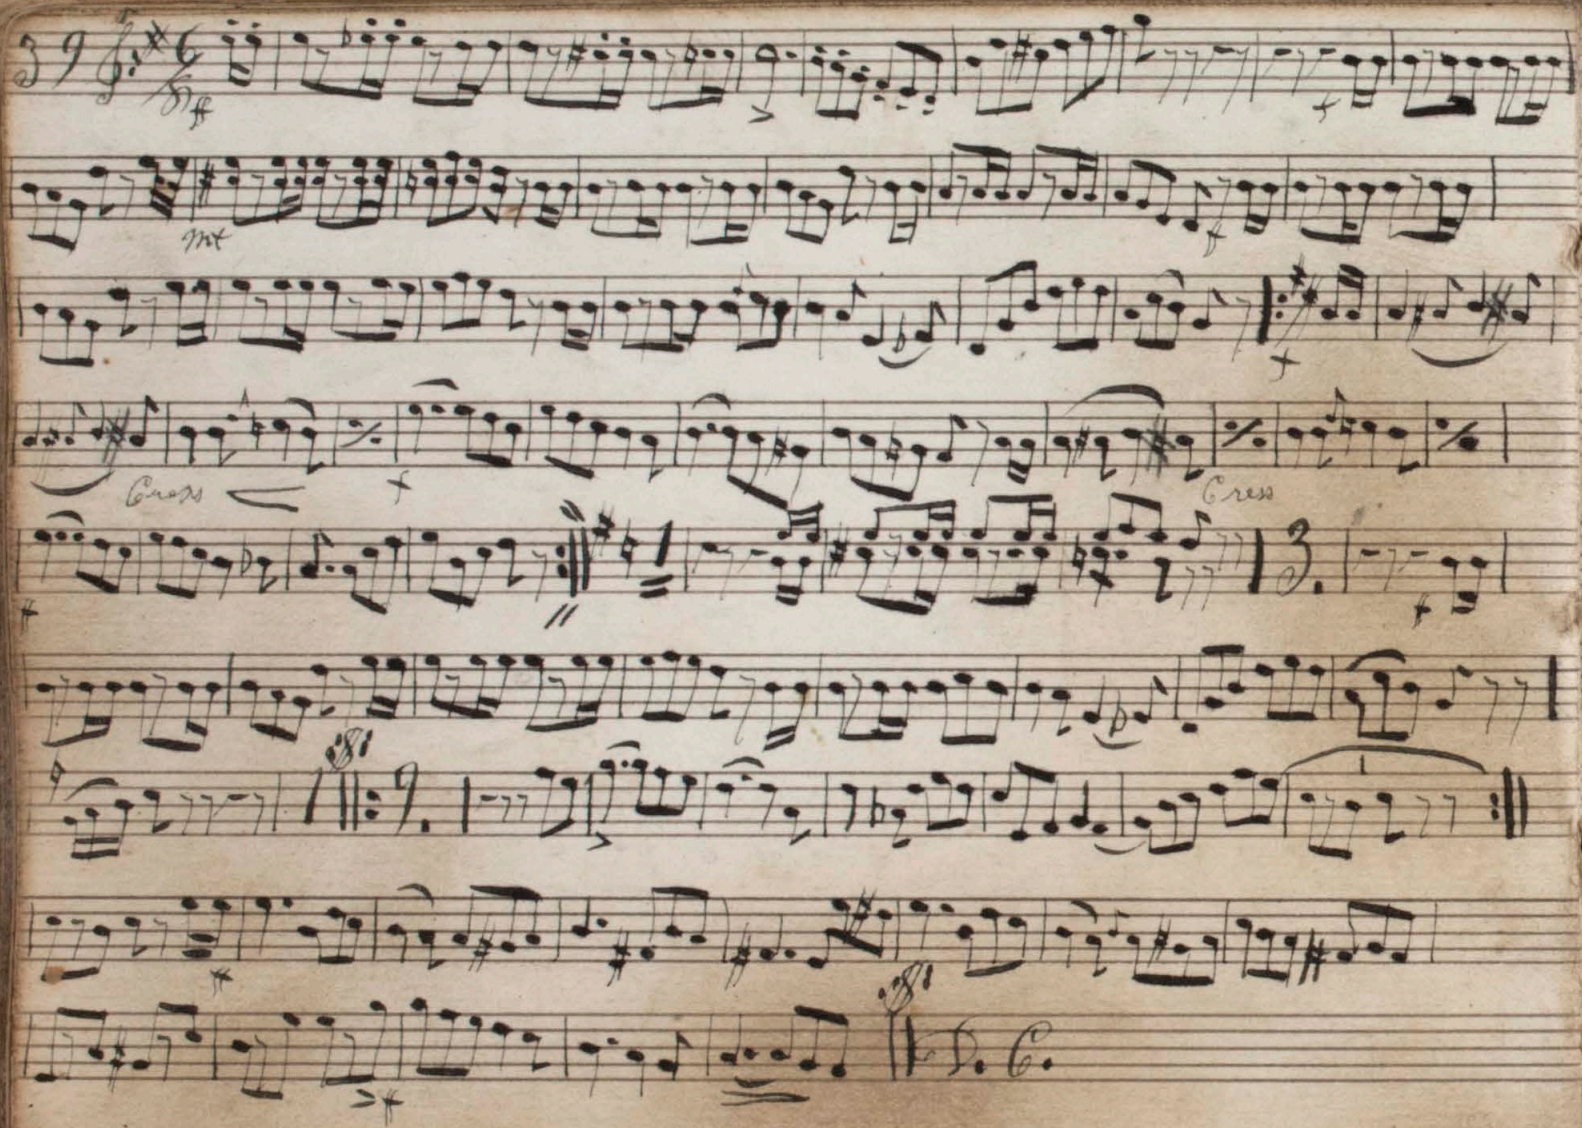 39 6
ff
mf
Cress Cress
3.
9.
D. C.